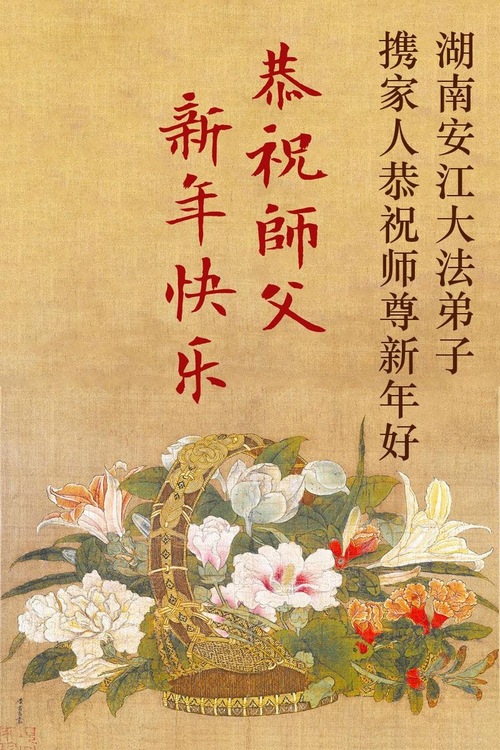 湖南安江大法弟子
携家人恭祝师尊新年好
恭祝師父
新年快乐